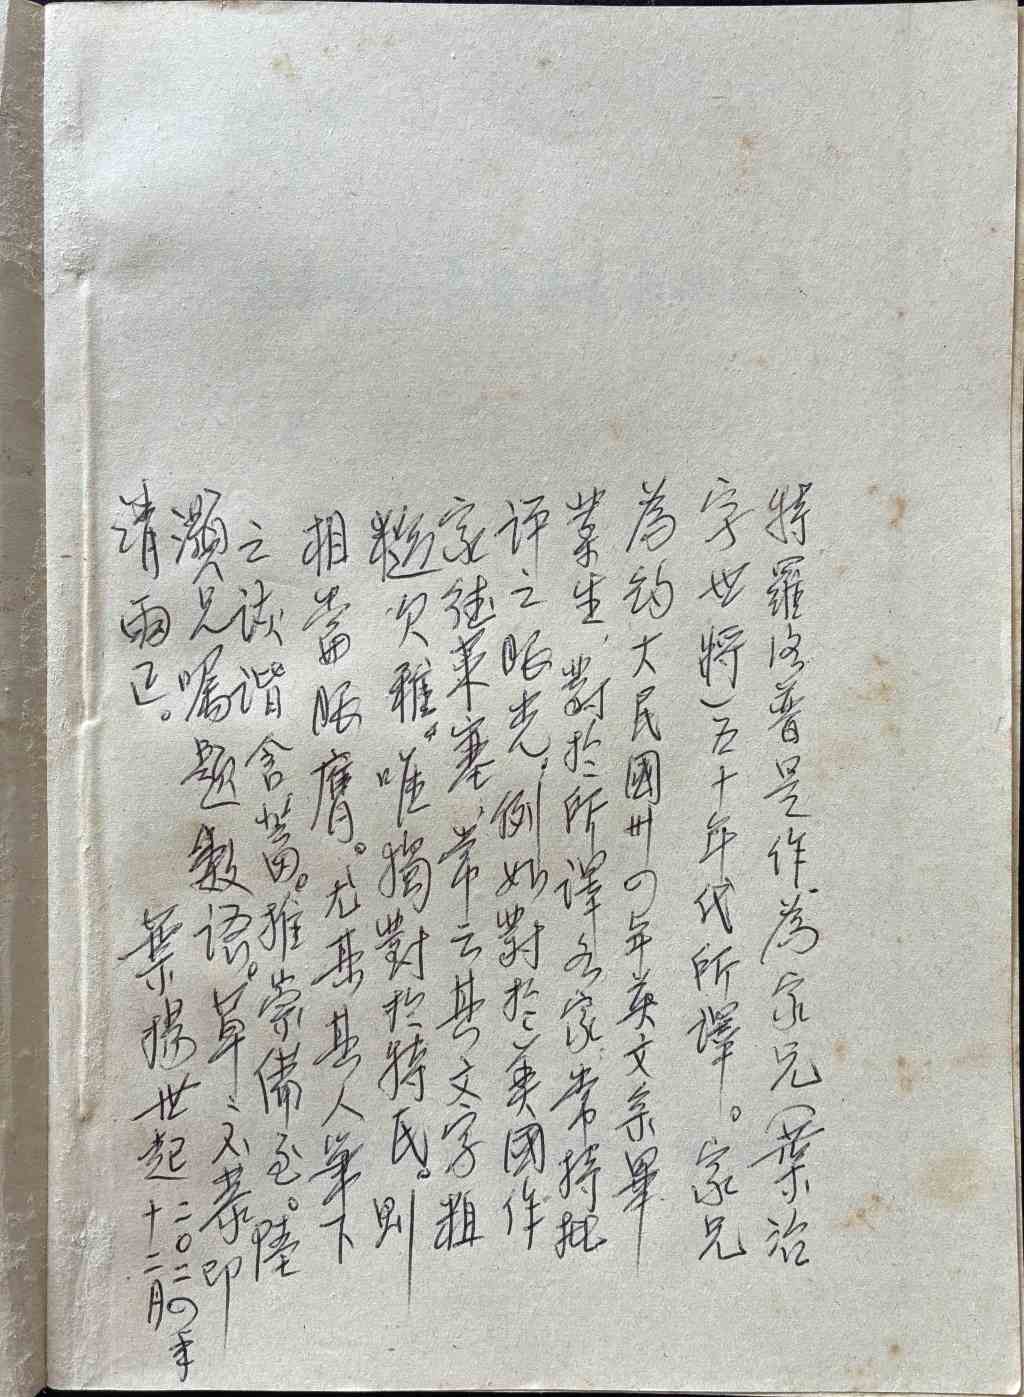 特羅洛普是作為家兄(葉治
字世將)五十年代所譯。家兄
為約大民國卅四年英文系畢
業生,對於所譯名家常持批
評之眼光。例如對於美國作
家德萊塞,常云其文字粗
糙欠雅。唯獨對於特氏。則
相當眼膺。尤其其人筆下
之談諧含蓄。推崇備至。陸
灝兄囑題數語。草
清兩正。
葉揚世起
二〇二四年
十二月